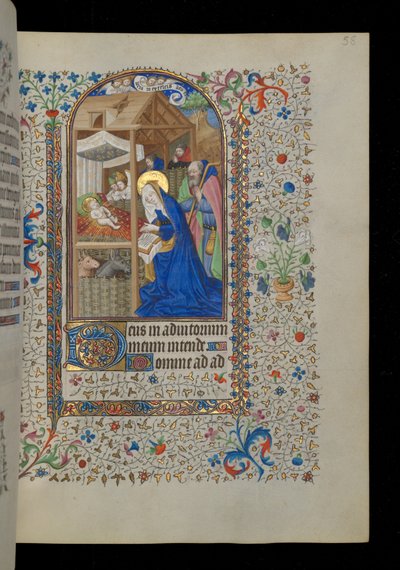 in excelsis
Deus in adiutorium
meum intende
Domine ad ad